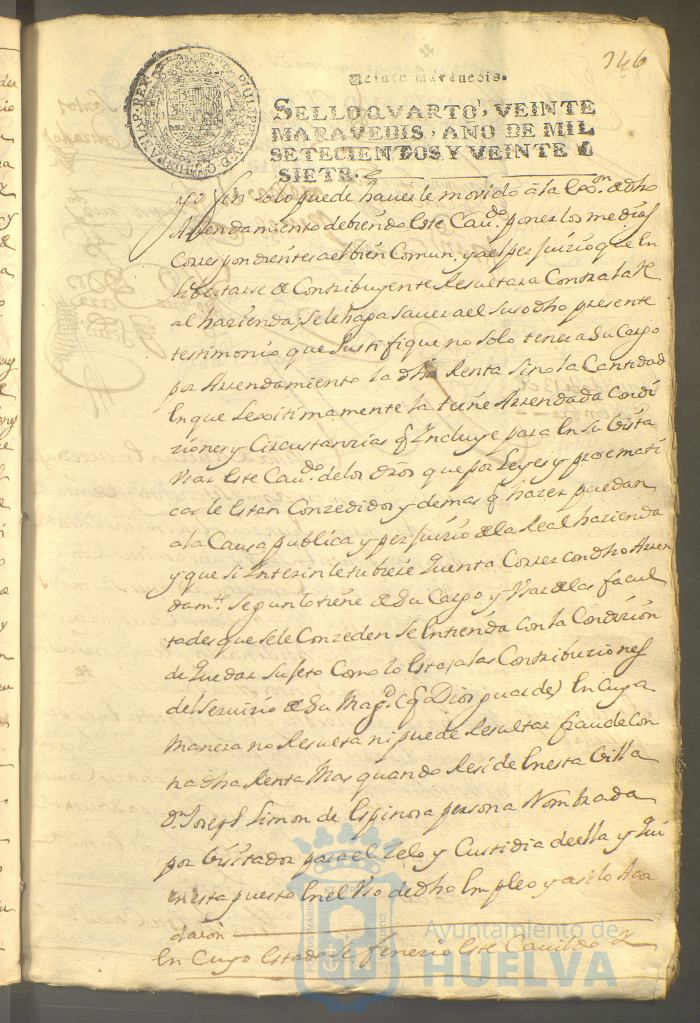 346
Veinte maravedis.
SELLO QVARTO, VEINTE
MARAVEDIS, AÑO DE MIL
SETECIENTOS Y VEINTE Y
SIETE.
solo puede haverle movido â la
Arrendamiento debiendo este Cavdo. poner los medios
Correspondientes a el bien Comun, y a el perjuirio que en
libertarse de Contribuyente Resultara Contra la Re
al hazienda, se le haga saver a el susodho presente
testimonio que Justifique no solo tener a Su Cargo
por Arrendamiento la dha Renta sino la Cantidad
en que Lexitimamente la tiene Arrendada Condi
ziones y Circustanzias q Incluye para en Su Vista
Usar este Cavdo. de los dros que por Leyes y pracmati
cas le estan Conzedidos y demas q hazer puedan
a la Causa publica y perjuirio de la Real hazienda
y que si Interin le tubiese quenta Correr con dho Arren
damto. Segun lo tiene de Su Cargo y Usar de las facul
tades que se le Conzeden se entienda con la Condizion
de quedar Sujeto Como lo esta a las Contribuziones
del Servizio de Su Magd. (q Dios guarde) en Cuya
manera no Resulta ni puede Resultar fraude Con
tra dha Renta Mas quando Reside en esta Villa
Dn Joseph Simon de Espinosa persona Nombrada
por Visitador para el Zelo y Custidia de ella y qui
en esta puesto en el Uso de dho empleo y asi lo Acor
daron
en Cuyo estado se fenezio este Cavildo
Ayuntamiento de
HUELVA